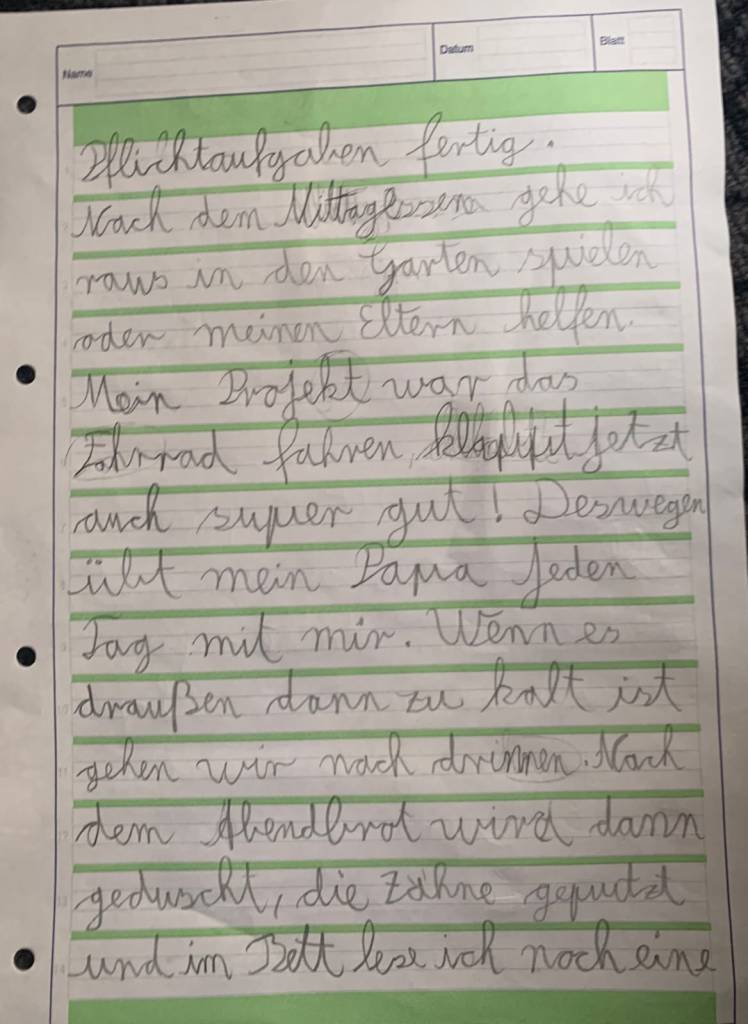 Name
Datum
Blatt
Pflichtaufgaben fertig.
Nach dem Mittagessen gehe ich
raus in den Garten spielen
oder meinen Eltern helfen.
Mein Projekt war das
Fahrrad fahren, klappt jetzt
auch super gut! Deswegen
übt mein Papa jeden
Tag mit mir. Wenn es
draußen dann zu kalt ist
gehen wir nach drinnen. Nach
dem Abendbrot wird dann
geduscht, die Zähne geputzt
und im Bett lese ich noch eine